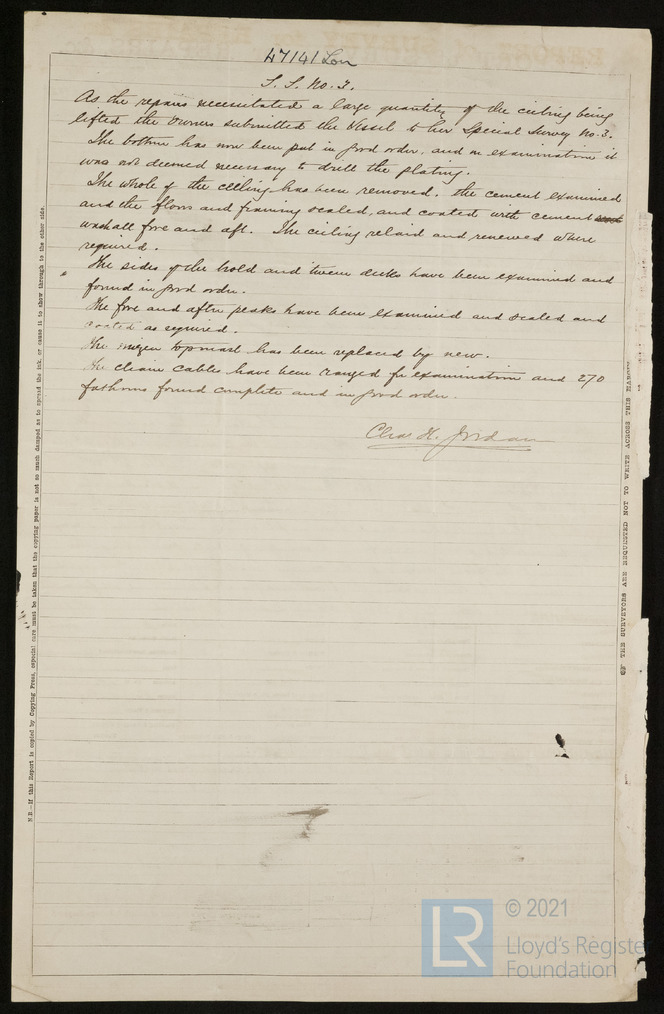 47141 Lon
S. S. No. 3.
As the repairs necessitated a large quantity of the ceiling being
lifted the Owners submitted the Vessel to her Special Survey No. 3.
The bottom has now been put in good order, and on examination it
was not deemed necessary to drill the plating.
The whole of the ceiling has been removed, the cement examined
and the floors and framing scaled, and coated with cement
washall fore and aft. The ceiling relaid and renewed where
required.
The sides of the hold and tween decks have been examined and
found in good order.
The fore and after peaks have been examined and scaled and
coated as required.
The mizen topmast has been replaced by new.
The chain cables have been ranged for examination and 270
fathoms found complete and in good order.
Chas H. Jordan
N.B.—If this Report is copied by Copying Press, especial care must be taken that the copying paper is not so much damped as to spread the ink, or cause it to show through to the other side.
THE SURVEYORS ARE REQUESTED NOT TO WRITE ACROSS THIS MARGIN
LR
© 2021
Lloyd's Register
Foundation